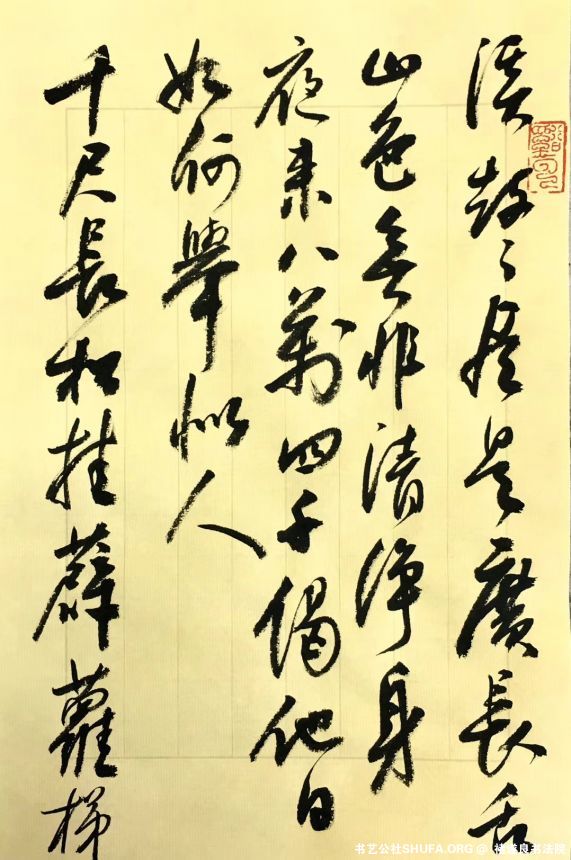 溪聲盡是廣長舌
山色無非清淨身
夜来八萬四千偈他日
如何舉似人
千尺長松挂薜蘿梯
书艺公社SHUFA.ORG @ 褚遂良书法院